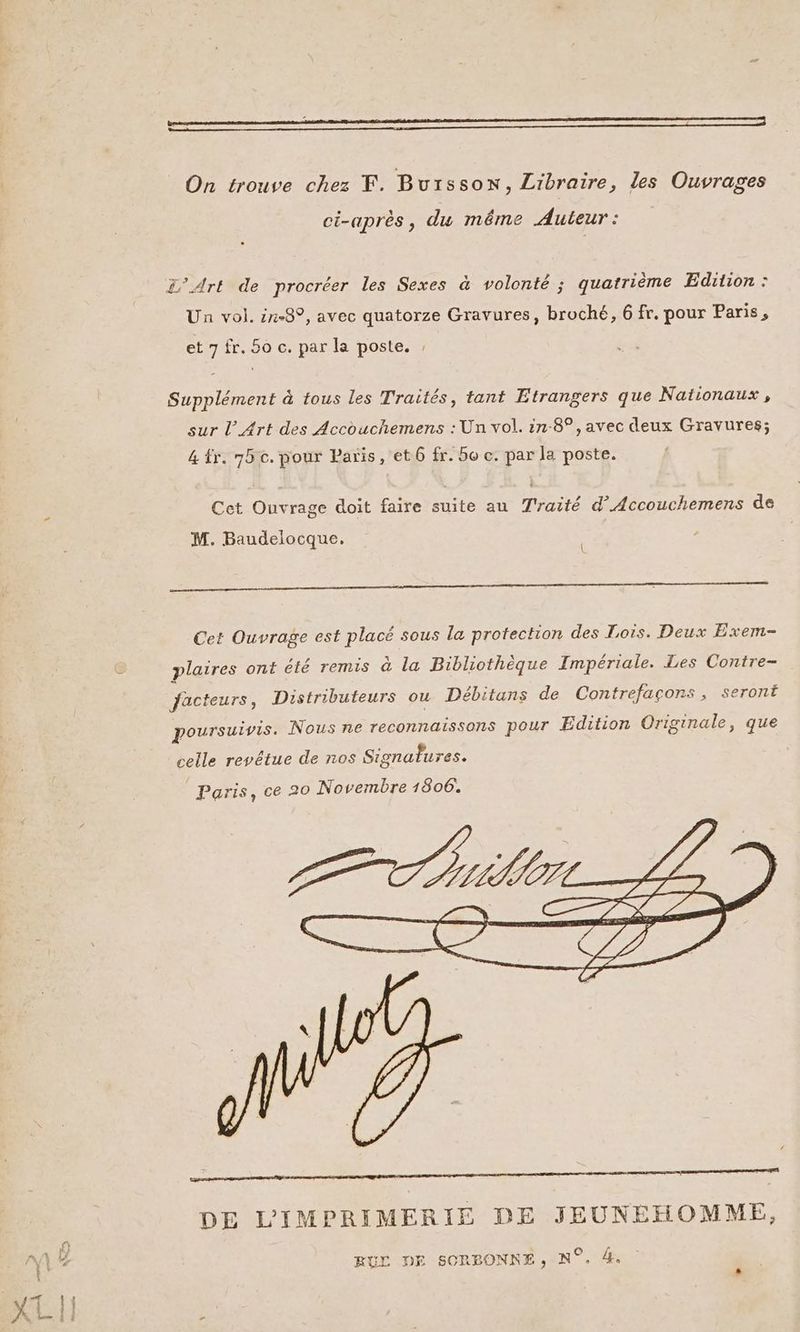 On trouve chez F. Buisson, Libraire, les Ouvrages
ci-après, du même Auteur :
L'Art de procréer les Sexes à volonté ; quatrième Edition :
Un vol. in-8°, avec quatorze Gravures, broché, 6 fr. pour Paris,
et 7 fr. 50 c. par la poste.
Supplément à tous les Traités, tant Etrangers que Nationaux,
sur l'Art des Accouchemens : Un vol. in-8°, avec deux Gravures;
4 fr. 75 c. pour Paris, et 6 fr. 50 c. par la poste.
Cet Ouvrage doit faire suite au Traité d'Accouchemens de
M. Baudelocque.
Cet Ouvrage est placé sous la protection des Lois. Deux Exem-
plaires ont été remis à la Bibliothèque Impériale. Les Contre-
facteurs, Distributeurs ou Débitans de Contrefaçons, seront
poursuivis. Nous ne reconnaissons pour Edition Originale, que
celle revêtue de nos Signatures.
Paris, ce 20 Novembre 1806.
Buisson
Millot
DE L'IMPRIMERIE DE JEUNEHOMME,
RUE DE SORBONNE, N°. 4.
XLII